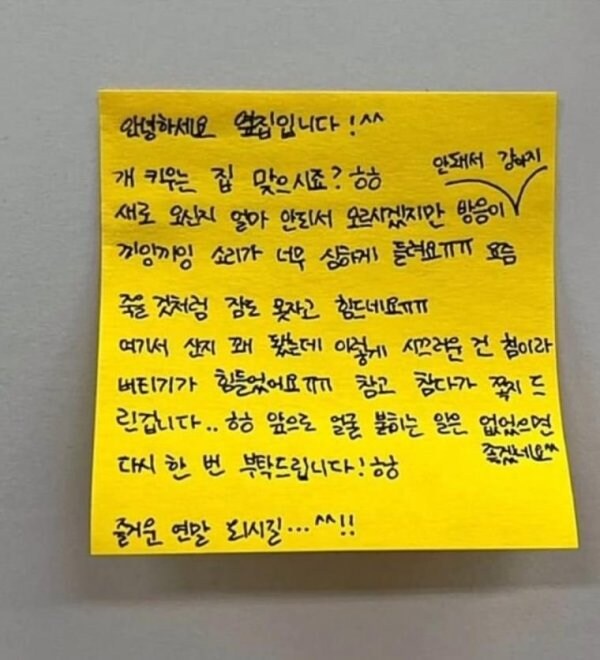 안녕하세요 옆집입니다!^^
개 키우는 집 맞으시죠?ㅎㅎ
새로 오신지 얼마 안되서 모르시겠지만 방음이 안돼서 강아지
끼잉끼잉 소리가 너무 심하게 들려요ㅠㅠ 요즘
죽을 것처럼 잠도 못자고 힘드네요ㅠㅠ
여기서 산지 꽤 됐는데 이렇게 시끄러운 건 첨이라
버티기가 힘들었어요ㅠㅠ 참고 참다가 쪽지 드
린겁니다..ㅎㅎ 앞으로 얼굴 붉히는 일은 없었으면
좋겠네요^^
다시 한 번 부탁드립니다!ㅎㅎ
즐거운 연말 되시길...^^!!